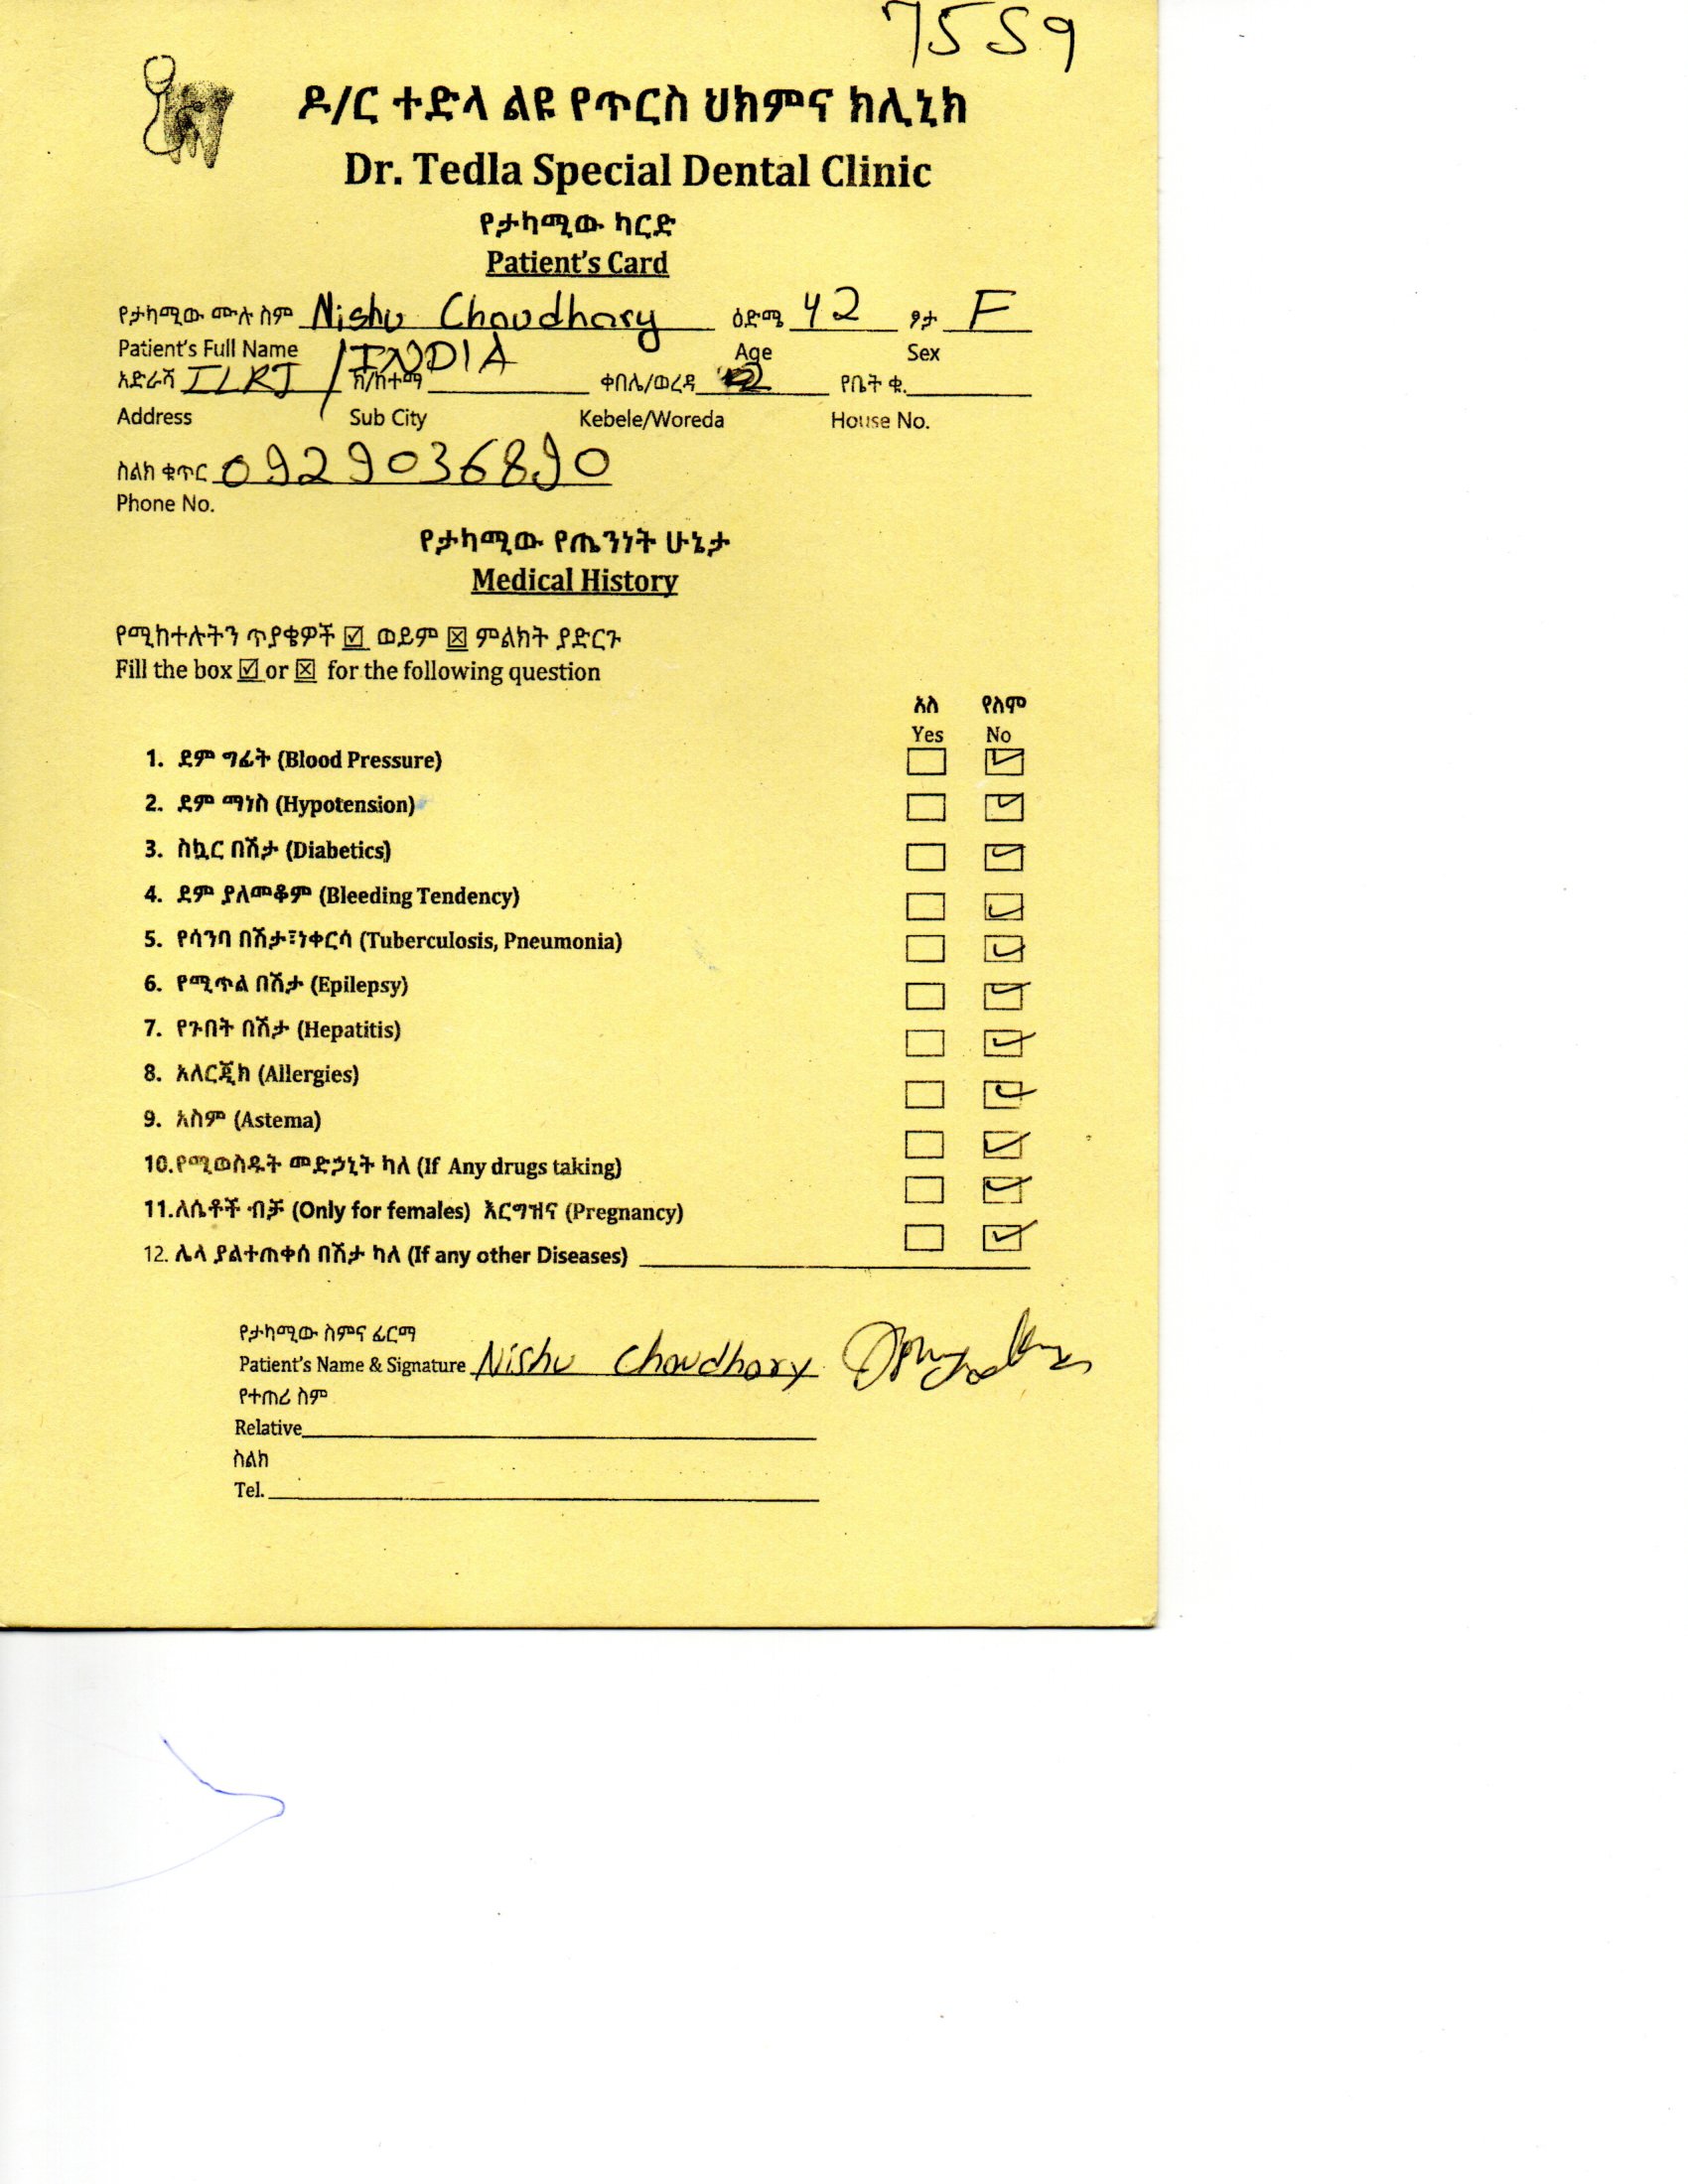 7559
ዶ/ር ተድላ ልዩ የጥርስ ህክምና ክሊኒክ
Dr. Tedla Special Dental Clinic
የታካሚው ካርድ
Patient's Card
የታካሚው ሙሉ ስም Nishu Choudhary ዕድሜ 42 ፆታ F
Patient's Full Name Age Sex
አድራሻ ILRI / INDIA ክ/ከተማ ቀበሌ/ወረዳ የቤት ቁ.
Address Sub City Kebele/Woreda House No.
ስልክ ቁጥር 0929036890
Phone No.
የታካሚው የጤንነት ሁኔታ
Medical History
የሚከተሉትን ጥያቄዎች ☑ ወይም ☒ ምልክት ያድርጉ
Fill the box ☑ or ☒ for the following question
አለ የለም
Yes No
1. ደም ግፊት (Blood Pressure) ☐ ☑
2. ደም ማነስ (Hypotension) ☐ ☑
3. ስኳር በሽታ (Diabetics) ☐ ☑
4. ደም ያለመቆም (Bleeding Tendency) ☐ ☑
5. የሳንባ በሽታ፣ነቀርሳ (Tuberculosis, Pneumonia) ☐ ☑
6. የሚጥል በሽታ (Epilepsy) ☐ ☑
7. የጉበት በሽታ (Hepatitis) ☐ ☑
8. አለርጂክ (Allergies) ☐ ☑
9. አስም (Astema) ☐ ☑
10.የሚወስዱት መድኃኒት ካለ (If Any drugs taking) ☐ ☑
11.ለሴቶች ብቻ (Only for females) እርግዝና (Pregnancy) ☐ ☑
12. ሌላ ያልተጠቀሰ በሽታ ካለ (If any other Diseases)
የታካሚው ስምና ፊርማ
Patient's Name & Signature Nishu Choudhary
የተጠሪ ስም
Relative
ስልክ
Tel.